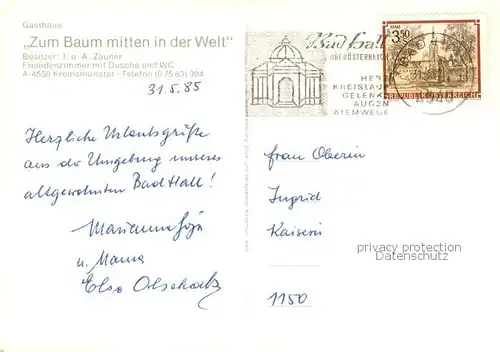 Gasthaus
„Zum Baum mitten in der Welt"
Besitzer: I. u. A. Zauner
Fremdenzimmer mit Dusche und WC
A-4550 Kremsmünster - Telefon (0 75 83) 304
31.5.85
Herzliche Urlaubsgrüße
aus der Umgebung unseres
altgewohnten Bad Hall!
Marianne
u. Mama
Elsa
Bad Hall
OBERÖSTERREICH
HERZ
KREISLAUF
GELENKE
AUGEN
ATEMWEGE
3.50
REPUBLIK ÖSTERREICH
4540
Frau Oberin
Ingrid
Kaiserin
1150
privacy protection
www.oldthing.de